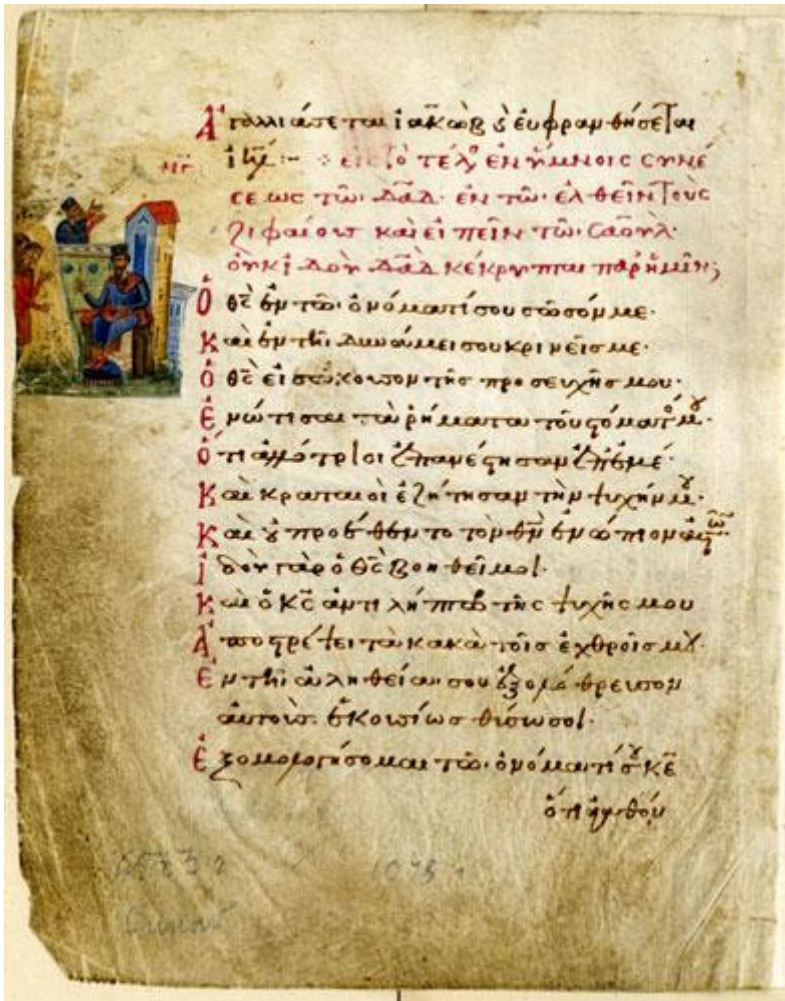 Ἀγαλλιάσεται ἰακὼβ ϗ εὐφρανθήσεται
ἰηλ:– εἰς τὸ τέλος ἐν ὕμνοις συνέ
σεως τῶ δαδ· ἐν τῶ ἐλθεῖν τοὺς
ζιφαίους καὶ εἰπεῖν τῶ σαούλ·
οὐκ ἰδοὺ δαδ κέκρυπται παρ' ἡμῖν;
Ὁ θς ἐν τῶ ὀνόματί σου σῶσόν με·
Καὶ ἐν τῆ δυνάμει σου κρινεῖς με·
Ὁ θς εἰσάκουσον τῆς προσευχῆς μου·
Ἐνώτισαι τὰ ῥήματα τοῦ στόματός μου·
Ὅτι ἀλλότριοι ἐπανέστησαν ἐπ' ἐμέ·
Καὶ κραταιοὶ ἐζήτησαν τὴν ψυχήν μου·
Καὶ οὐ προέθεντο τὸν θν ἐνώπιον αὐτῶν·
Ἰδοὺ γὰρ ὁ θς βοηθεῖ μοι·
Καὶ ὁ κς ἀντιλήπτωρ τῆς ψυχῆς μου
Ἀποστρέψει τὰ κακὰ τοῖς ἐχθροῖς μου·
Ἐν τῆ ἀληθεία σου ἐξολόθρευσον
αὐτούς· ἑκουσίως θύσω σοι·
Ἐξομολογήσομαι τῶ ὀνόματί σου κε
ὅτι ἀγαθόν